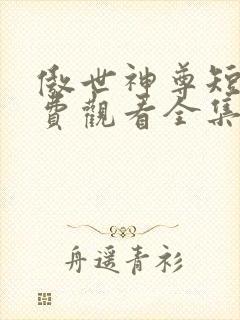 傲世神尊短
費觀看全集
舟遥青衫